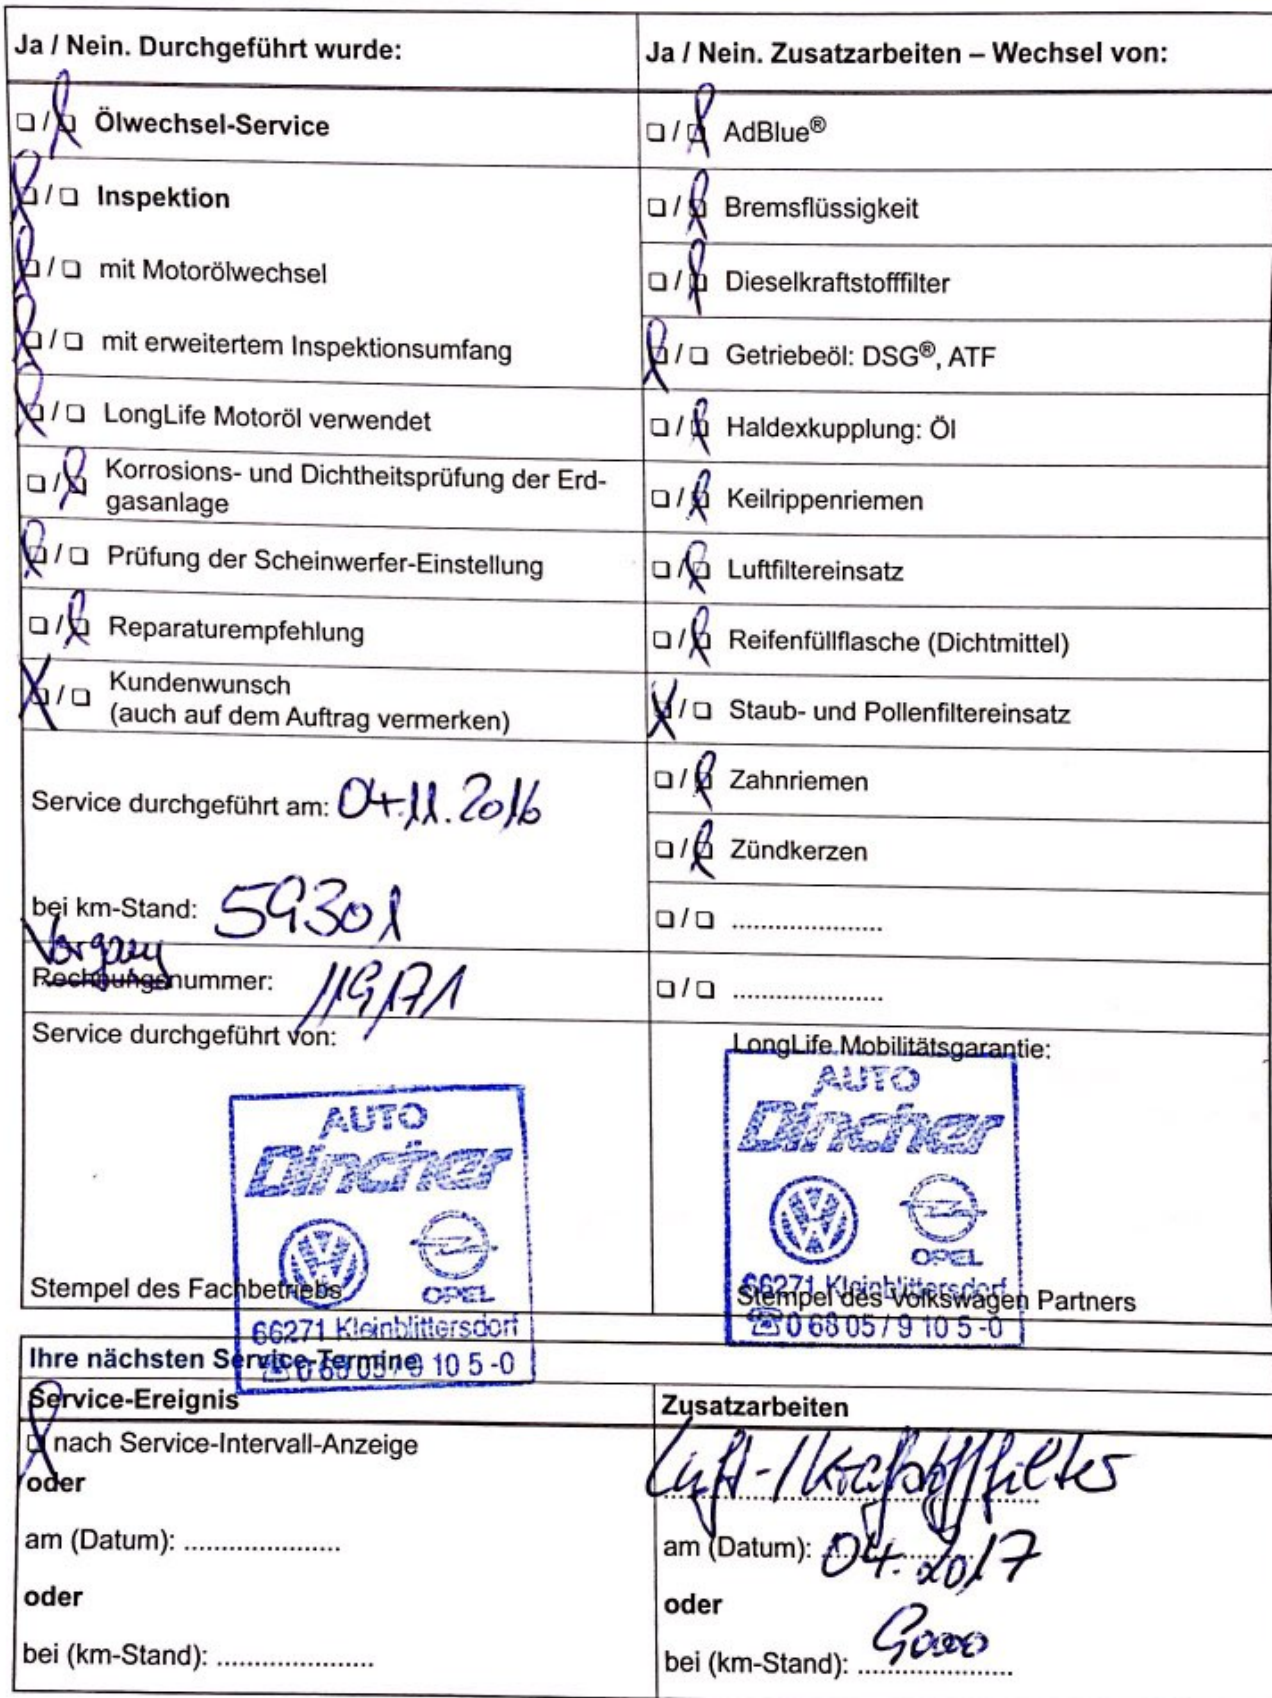 Ja / Nein. Durchgeführt wurde:
❏ / ❏ Ölwechsel-Service
❏ / ❏ Inspektion
❏ / ❏ mit Motorölwechsel
❏ / ❏ mit erweitertem Inspektionsumfang
❏ / ❏ LongLife Motoröl verwendet
❏ / ❏ Korrosions- und Dichtheitsprüfung der Erd-
gasanlage
❏ / ❏ Prüfung der Scheinwerfer-Einstellung
❏ / ❏ Reparaturempfehlung
❏ / ❏ Kundenwunsch
(auch auf dem Auftrag vermerken)
Service durchgeführt am: 04.11.2016
bei km-Stand: 59301
Vorgang
Rechnungsnummer: 119171
Service durchgeführt von:
AUTO
Dincher
OPEL
66271 Kleinblittersdorf
☎ 0 68 05 / 9 10 5 -0
Stempel des Fachbetriebs
Ja / Nein. Zusatzarbeiten – Wechsel von:
❏ / ❏ AdBlue®
❏ / ❏ Bremsflüssigkeit
❏ / ❏ Dieselkraftstofffilter
❏ / ❏ Getriebeöl: DSG®, ATF
❏ / ❏ Haldexkupplung: Öl
❏ / ❏ Keilrippenriemen
❏ / ❏ Luftfiltereinsatz
❏ / ❏ Reifenfüllflasche (Dichtmittel)
❏ / ❏ Staub- und Pollenfiltereinsatz
❏ / ❏ Zahnriemen
❏ / ❏ Zündkerzen
❏ / ❏ .....................
❏ / ❏ .....................
LongLife Mobilitätsgarantie:
AUTO
Dincher
OPEL
66271 Kleinblittersdorf
☎ 0 68 05 / 9 10 5 -0
Stempel des Volkswagen Partners
Ihre nächsten Service-Termine
Service-Ereignis
❏ nach Service-Intervall-Anzeige
oder
am (Datum): .....................
oder
bei (km-Stand): .....................
Zusatzarbeiten
Luft-/Kraftstofffilter
am (Datum): 04.2017
oder
bei (km-Stand): 9000